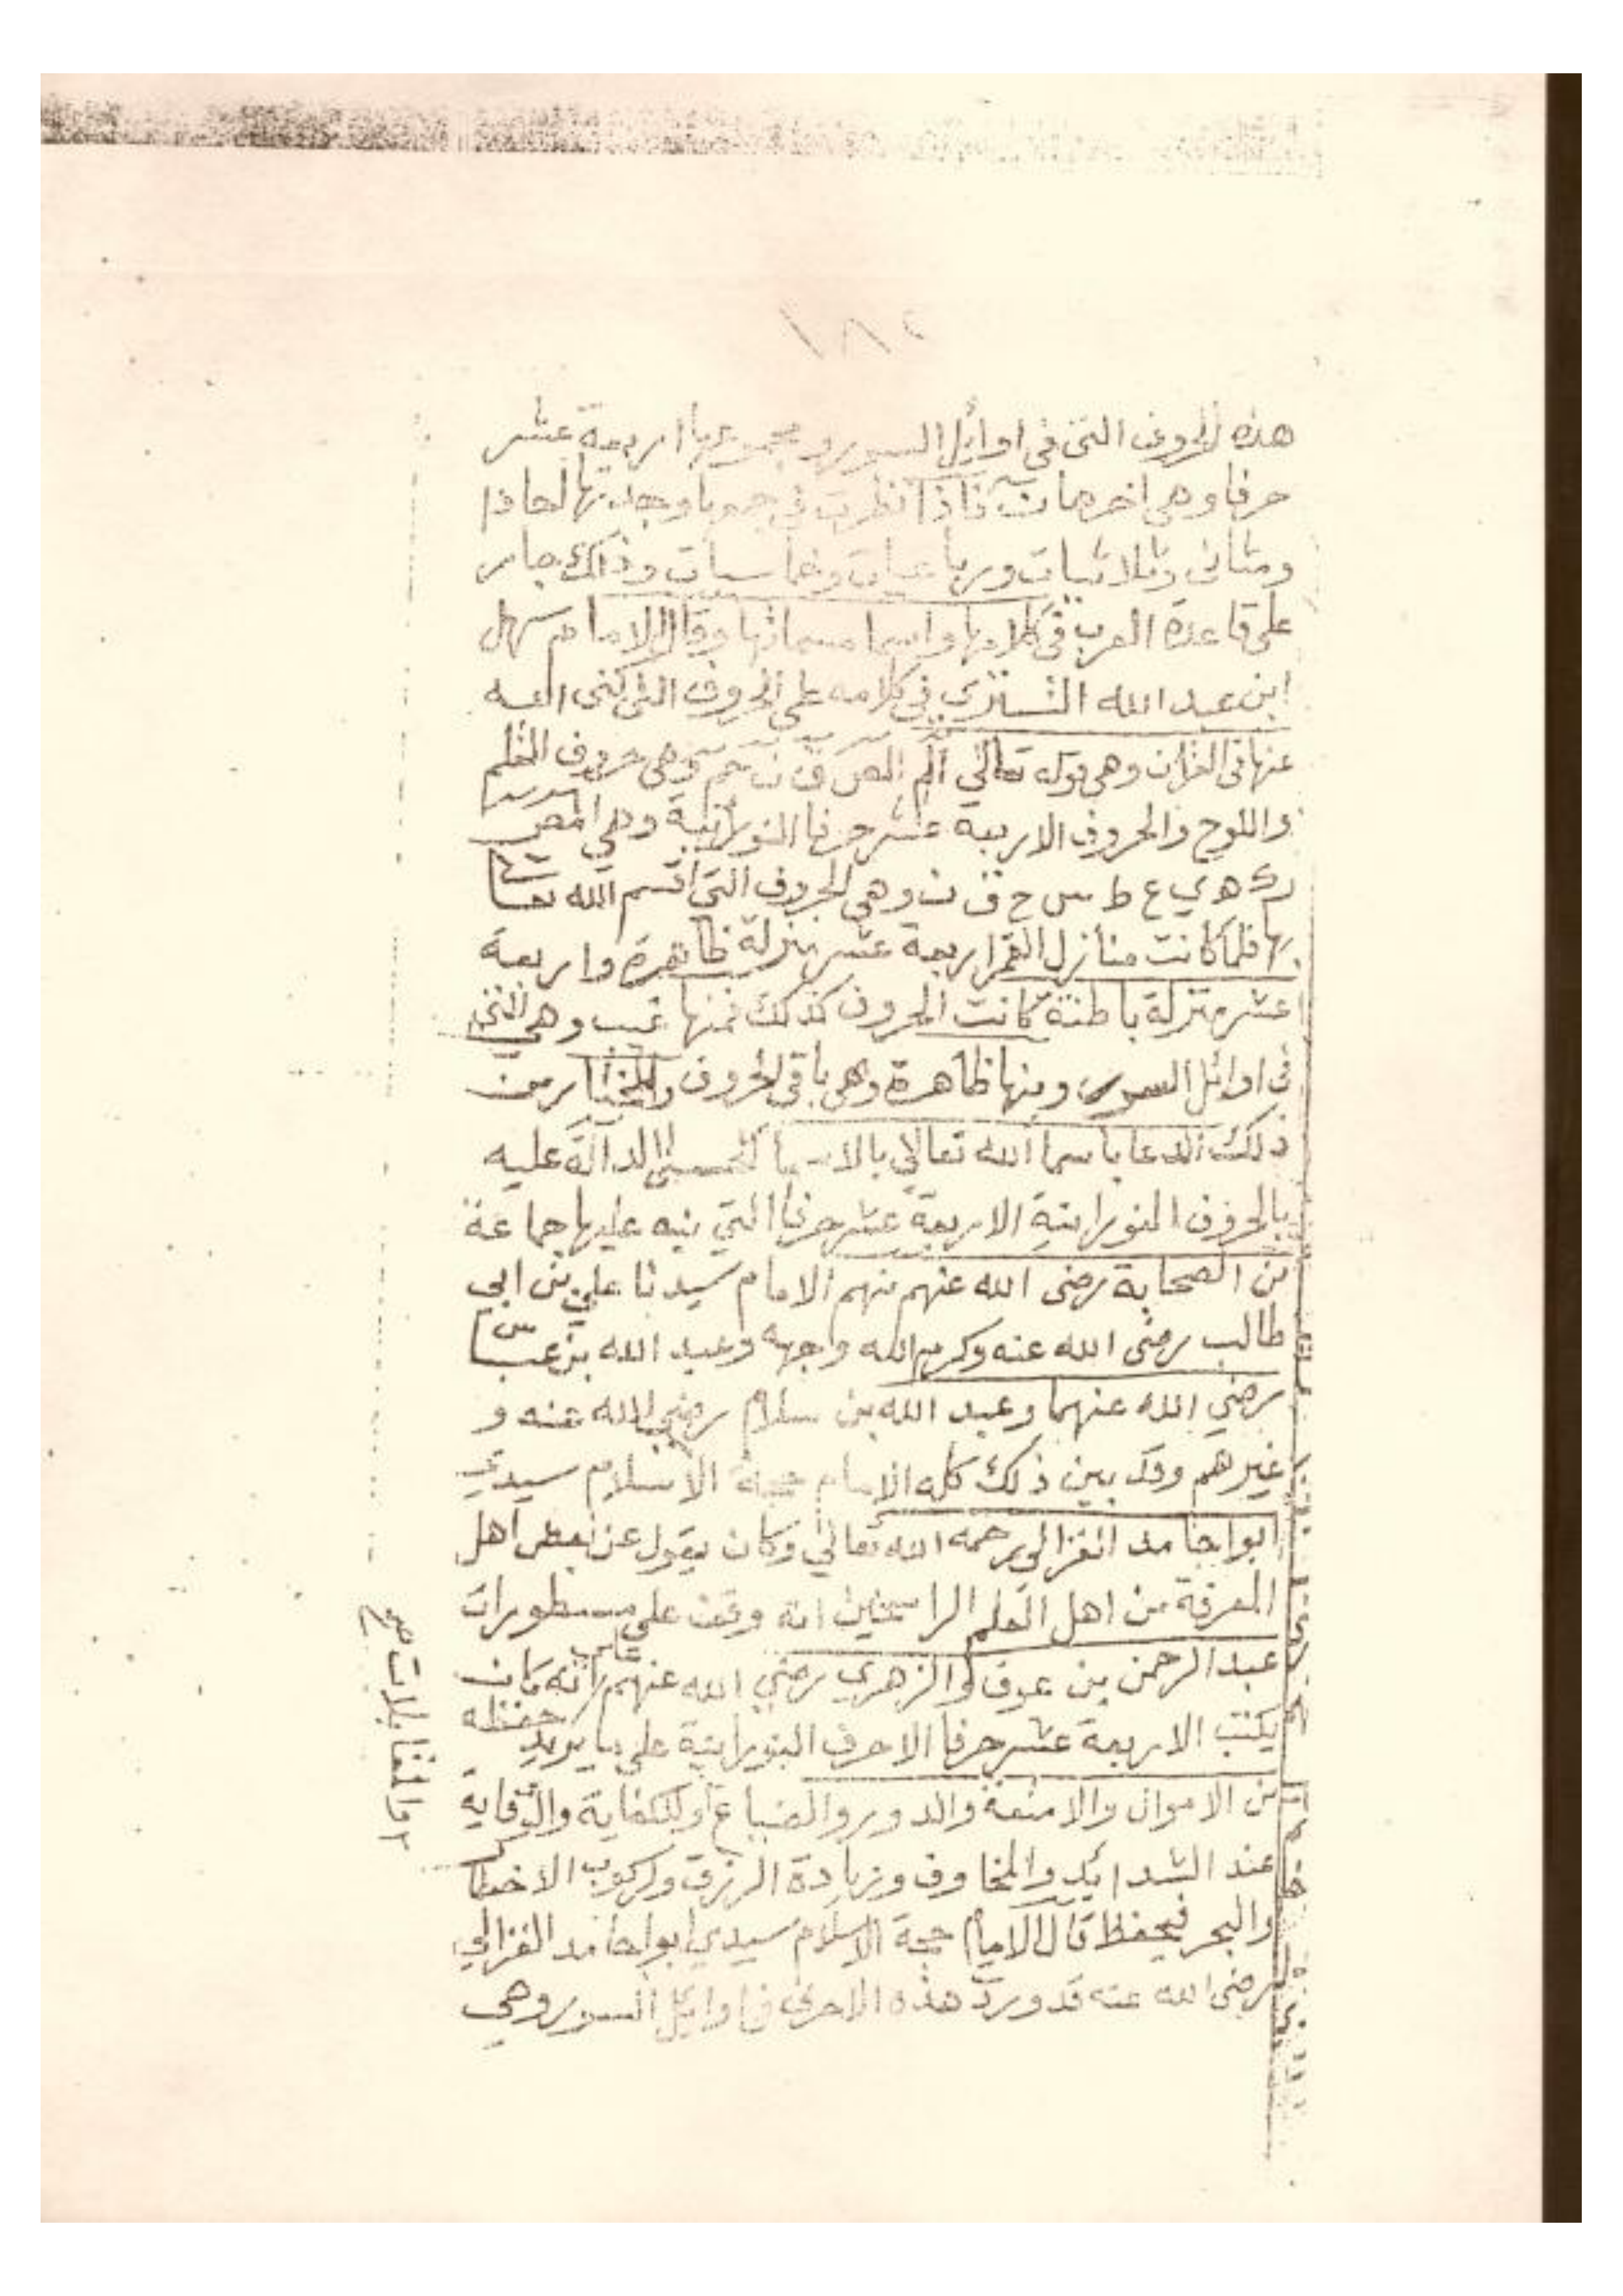 ١٨٢
هذه الحروف التى فى اوايل السور ومجموعها اربعة عشر
حرفا وهى اخرها ن فاذا نظرت فى جميعها وجدتها احادا
ومثانى وثلاثيات ورباعيات وخماسيات وذلك جار
على قاعدة العرب فى كلامها واسما مسماتها وقال الامام سهل
ابن عبد الله التسترى فى كلامه على الحروف التى كنى الله
عنها فى القرآن وهى قوله تعالى الم المص ق ن حم وهى حروف القلم
واللوح والحروف الاربعة عشر حرفا النورانية وهي ا ل م ص
ر ك ه ي ع ط س ح ق ن وهى الحروف التى اقسم الله تعالى
بها فلما كانت منازل القمر اربعة عشر منزلة ظاهرة واربعة
عشر منزلة باطنة كانت الحروف كذلك فمنها غيب وهى التى
فى اوائل السور ومنها ظاهرة وهى باقى الحروف والمختار من
ذلك الدعا باسما الله تعالى بالاسما الحسنى الدالة عليه
بالحروف النورانية الاربعة عشر حرفا التي نبه عليها جماعة
من الصحابة رضى الله عنهم منهم الامام سيدنا علي بن ابى
طالب رضى الله عنه وكرم الله واجهه وعبد الله بن عباس
رضي الله عنهما وعبد الله بن سلام رضي الله عنه و
غيرهم وقد بين ذلك كله الامام حجة الاسلام سيدي
ابوا حامد الغزالى رحمه الله تعالي وكان يقول عن بعض اهل
المعرفة من اهل العلم الراسخين انه وقف على مسطورات
عبد الرحمن بن عوف والزهري رضي الله عنهم انه كان
يكتب الاربعة عشر حرفا الاحرف النورانية على ما يريد حفظه
من الاموال والامتعة والدور والضياع وللكفاية والوقاية
عند الشدائد والمخاوف وزيادة الرزق وركوب الاخطار
والبحر فيحفظ قال الامام حجة الاسلام سيدي ابوا حامد الغزالي
رضى الله عنه قد ورد هذه الاحرف فى اوايل السور وهي